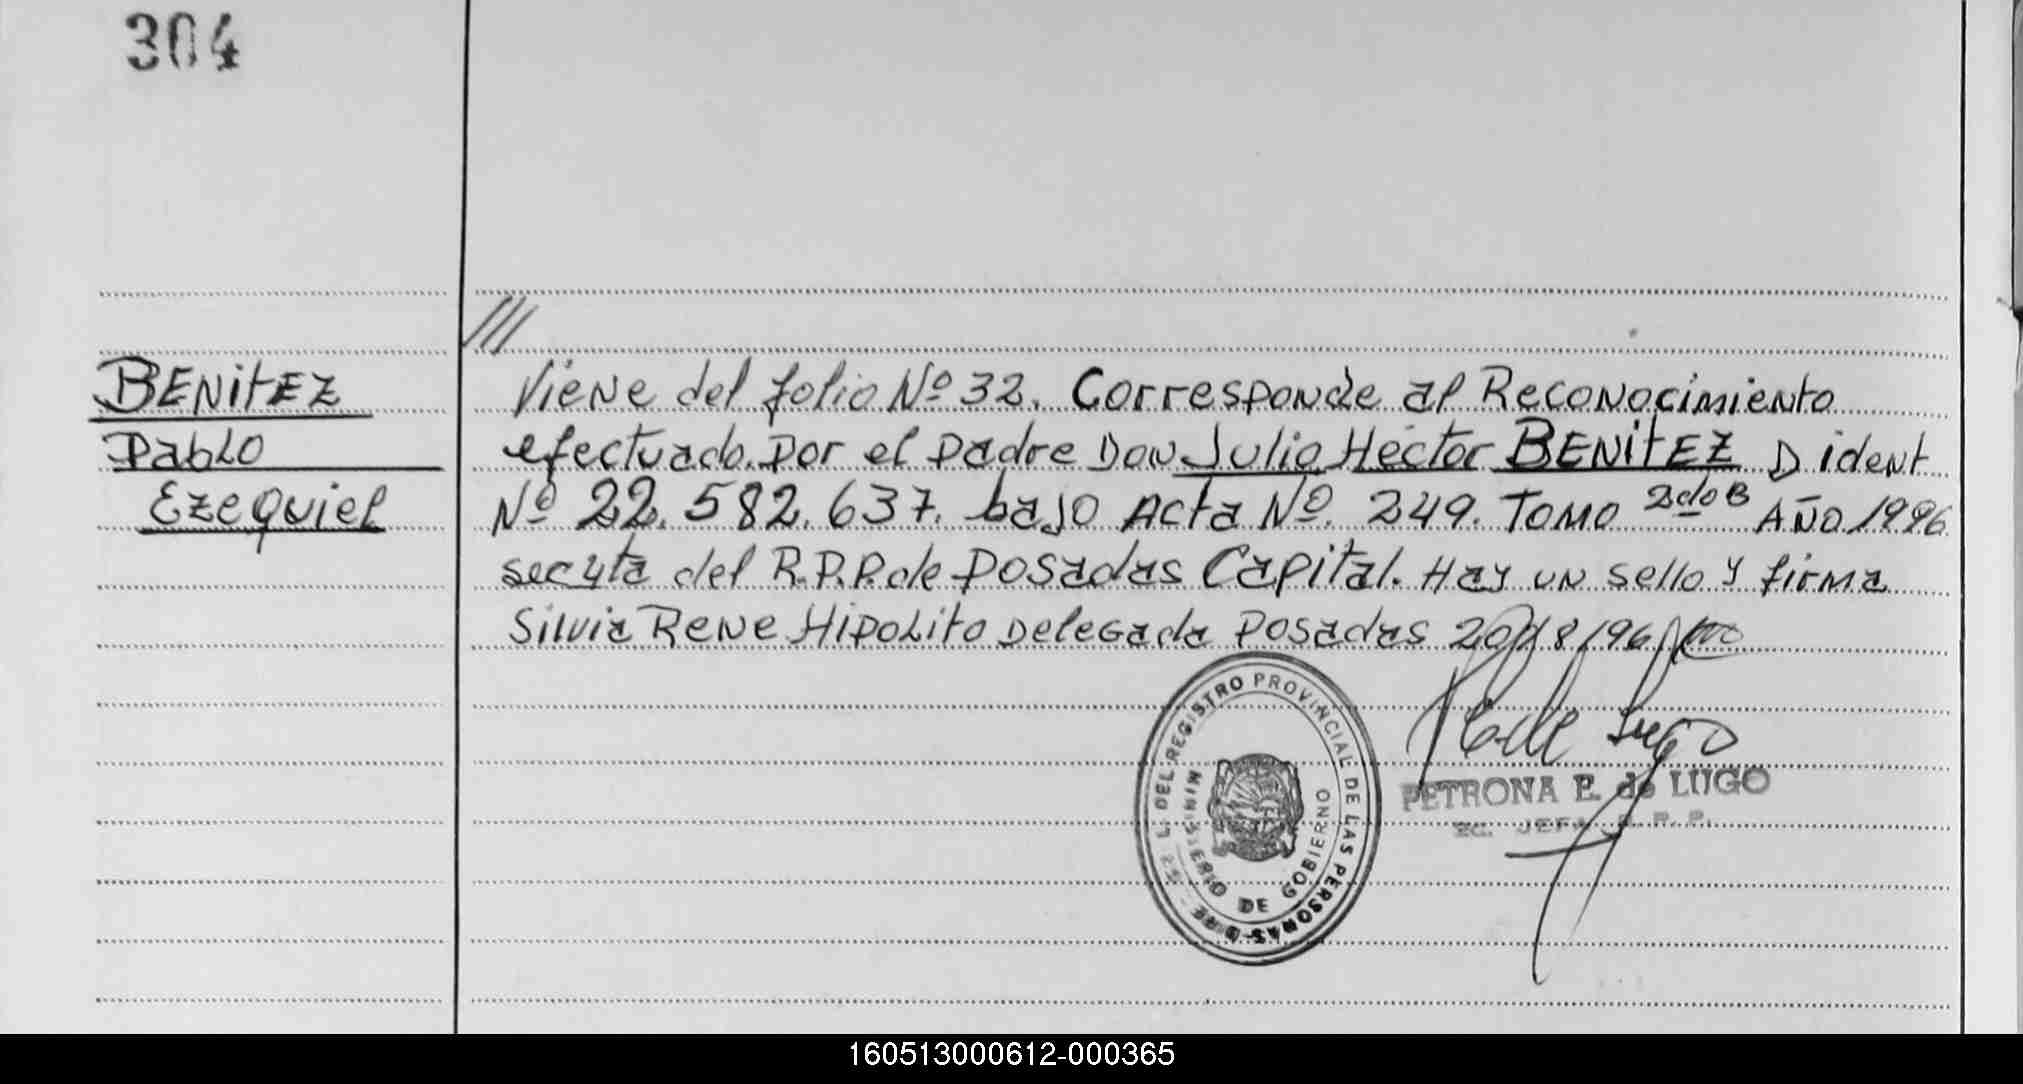 304
///
BENITEZ
Pablo
Ezequiel
Viene del folio Nº 32. Corresponde al Reconocimiento
efectuado por el padre Don Julio Héctor BENITEZ D ident
Nº 22.582.637. bajo Acta Nº 249. Tomo 2do B Año 1996
del R.P.P. de Posadas Capital. Hay un sello y firma
Silvia Rene Hipolito Delegada Posadas 20/8/96
DEL REGISTRO PROVINCIAL DE LAS PERSONAS
MINISTERIO DE GOBIERNO
PETRONA E. de LUGO
JEFA R. P. P.
160513000612-000365